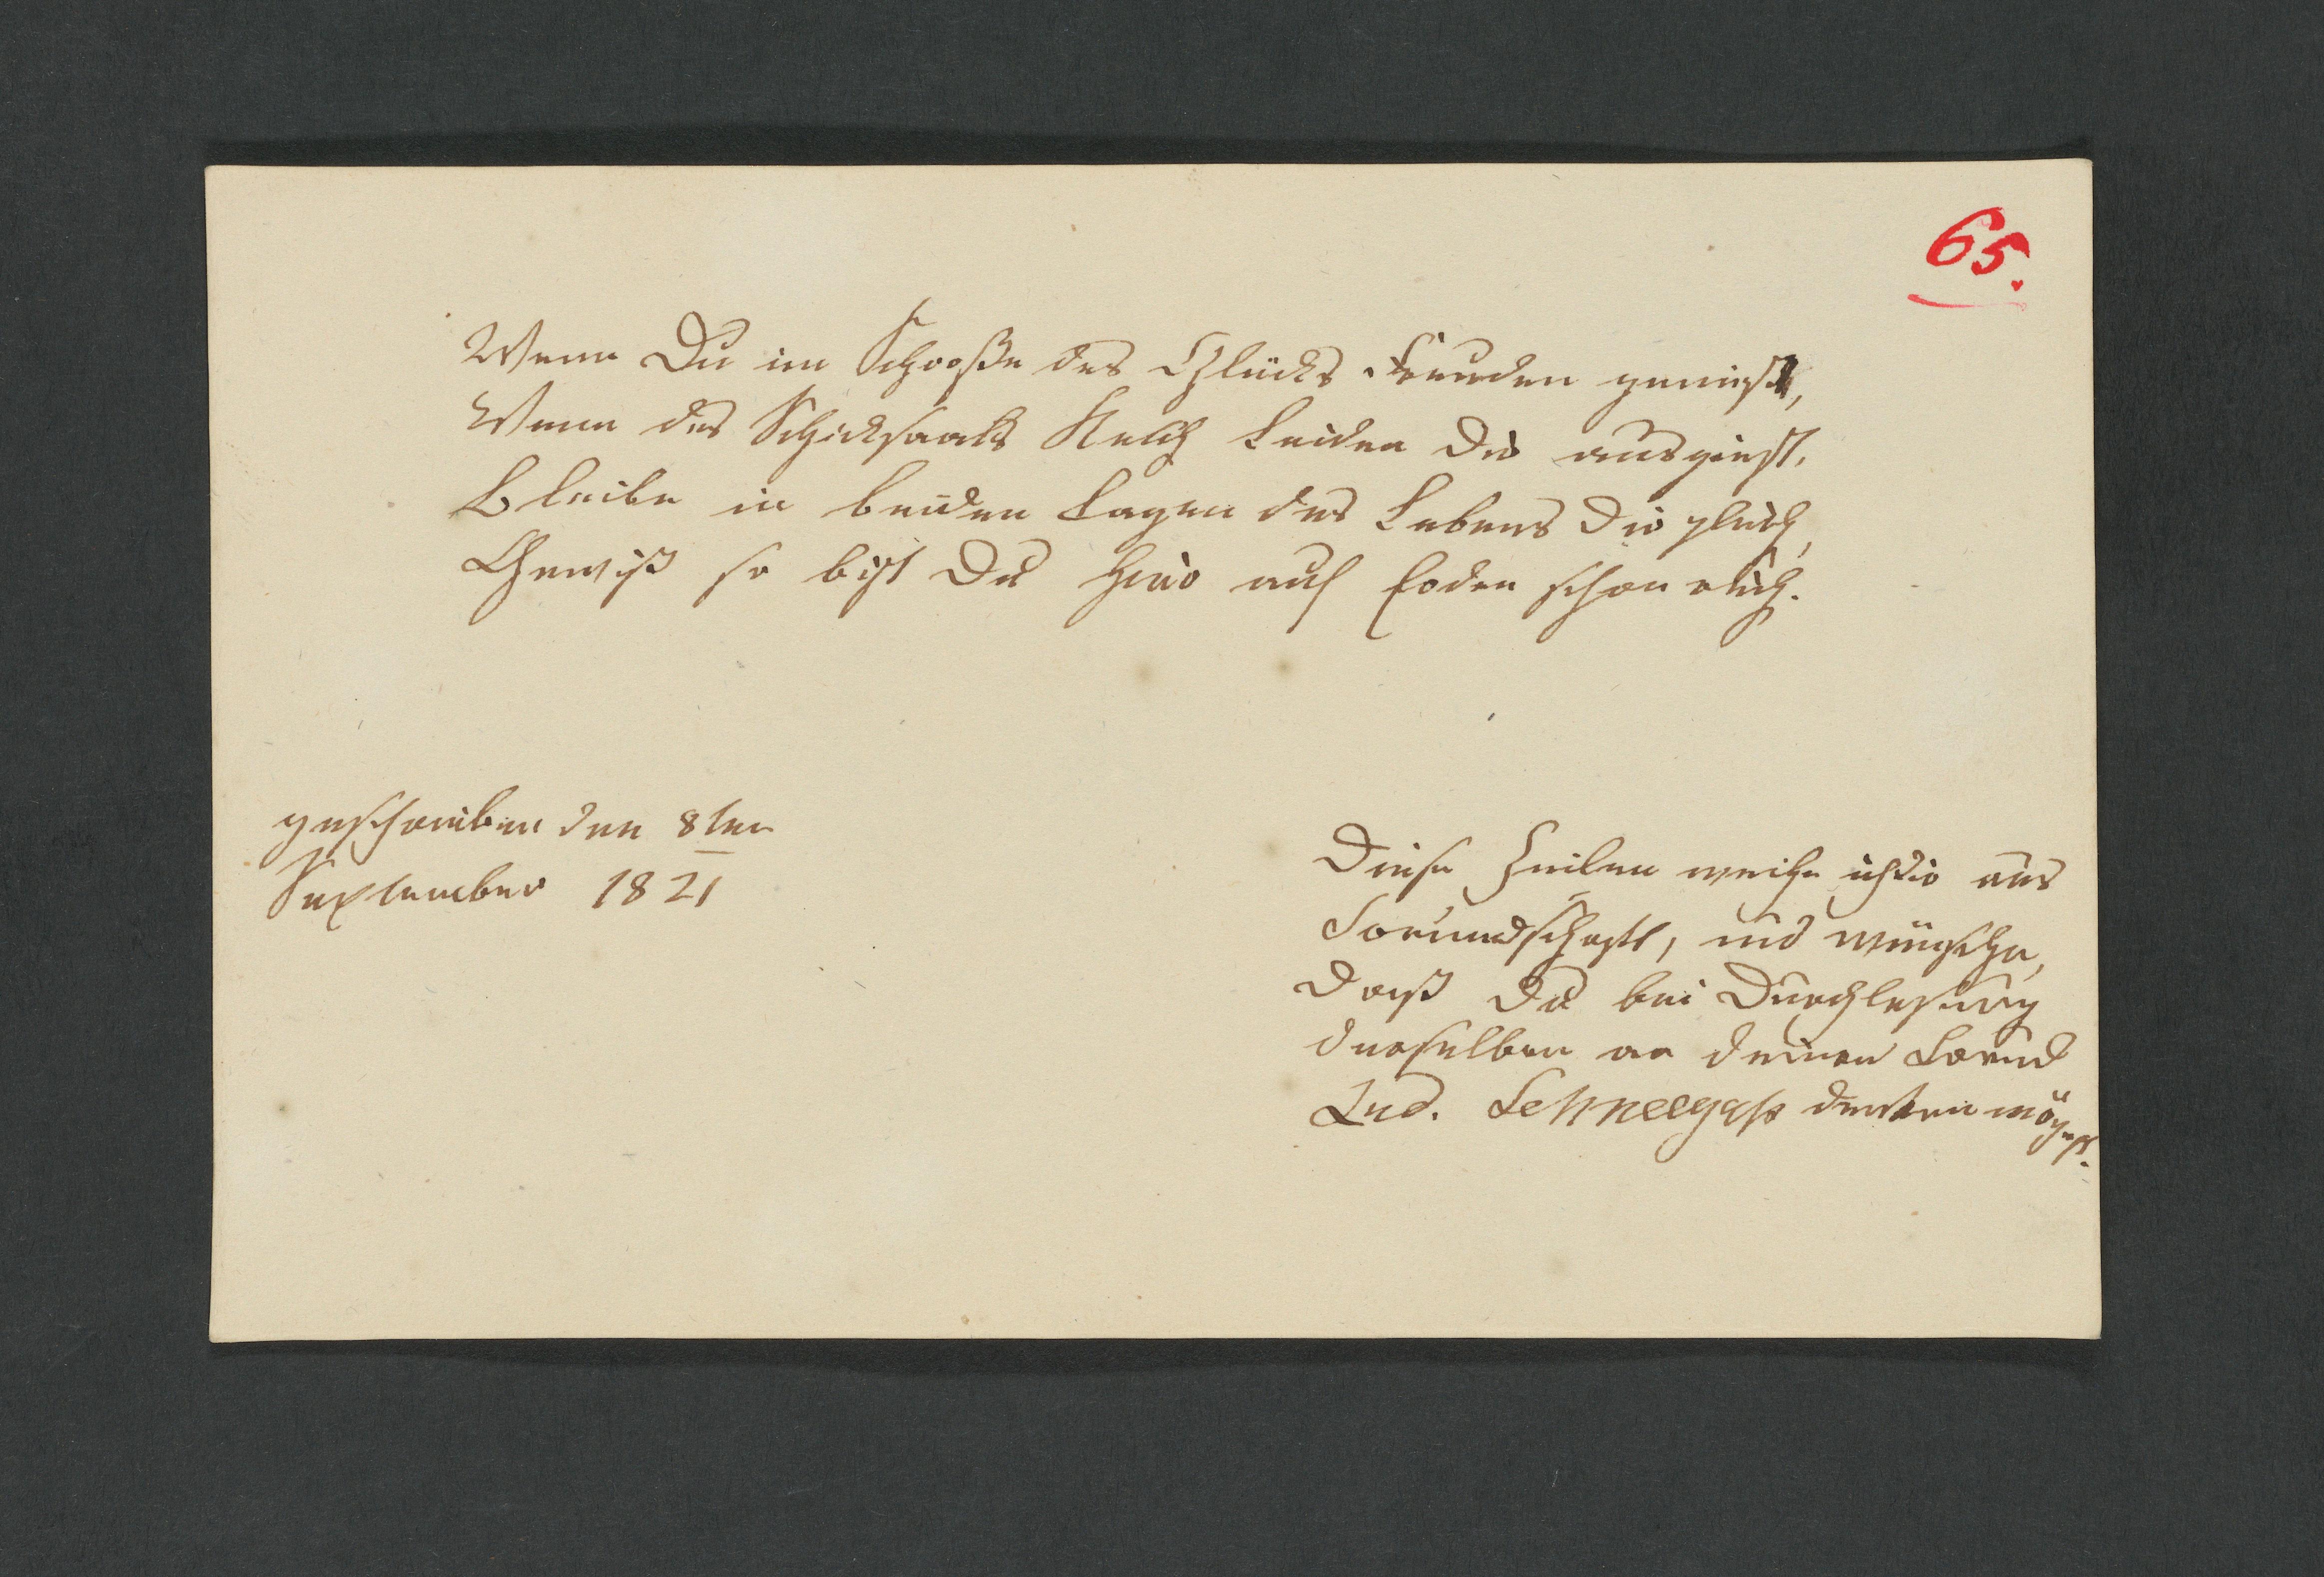 65.
Wenn Du im Schooße des Glücks Freuden genießt,
Wenn des Schicksaals Kelch Leiden Dir ausgiest,
Bleibe in beiden Lagen des Lebens Dir gleich,
Gewiß so bist Du hier auf Erden schon reich.
geschrieben den 8ten
September 1821
Diese Zeilen weihe ich dir aus
Freundschaft, und wünsche,
daß Du bei Durchlesung
derselben an deinen Freund
Lud. Schneegaß denken mögest.